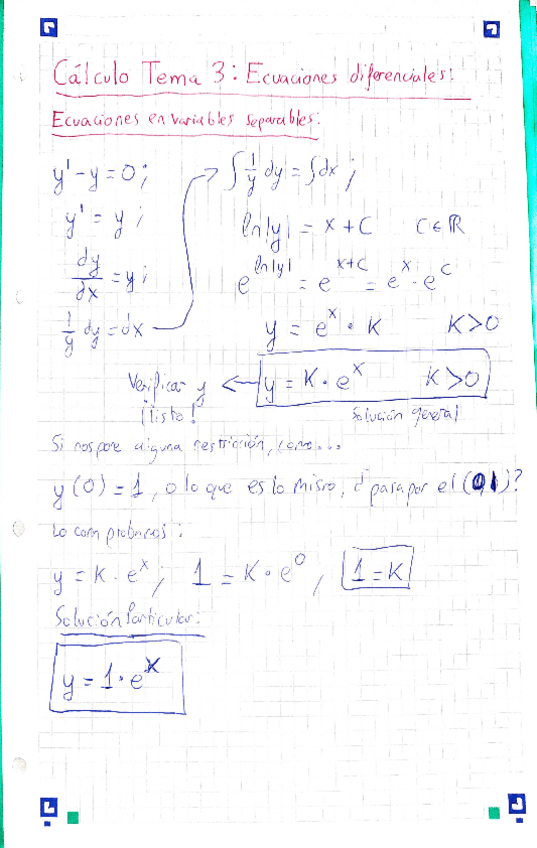 Cálculo Tema 3: Ecuaciones diferenciales:
Ecuaciones en variables separables:
y' - y = 0;
y' = y;
dy/dx = y;
1/y dy = dx
∫ 1/y dy = ∫ dx;
ln|y| = x + C C ∈ ℝ
e^ln|y| = e^x+C = e^x · e^C
y = e^x · K K > 0
y = K · e^x K > 0
Solución general
Verificar y
¡listo!
Si nos pone alguna restricción, como...
y(0) = 1, o lo que es lo mismo, ¿pasa por el (0,1)?
Lo comprobamos:
y = K · e^x; 1 = K · e^0, 1 = K
Solución Particular:
y = 1 · e^x